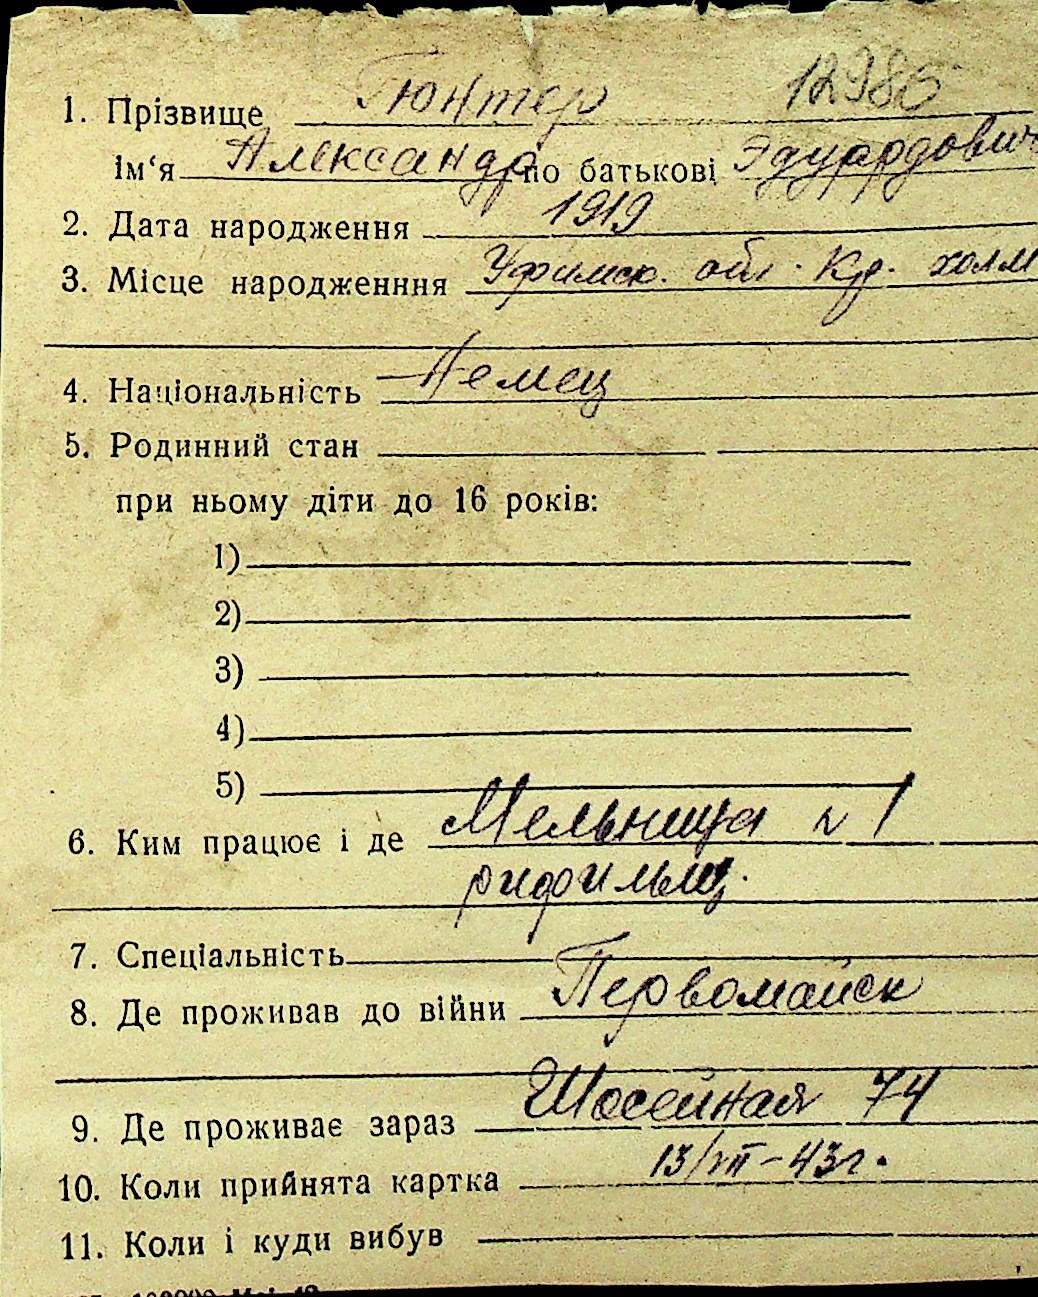 1. Прізвище Гюнтер 12986
Ім‘я Александр по батькові Эдуардович
2. Дата народження 1919
3. Місце народженння Уфимск. обл. Кр. холм
4. Національність Немец
5. Родинний стан
при ньому діти до 16 років:
1)
2)
3)
4)
5)
6. Ким працює і де Мельница № 1
7. Спеціальність
8. Де проживав до війни Первомайск
9. Де проживає зараз Шосейная 74
10. Коли прийнята картка 13/VII-43г.
11. Коли і куди вибув